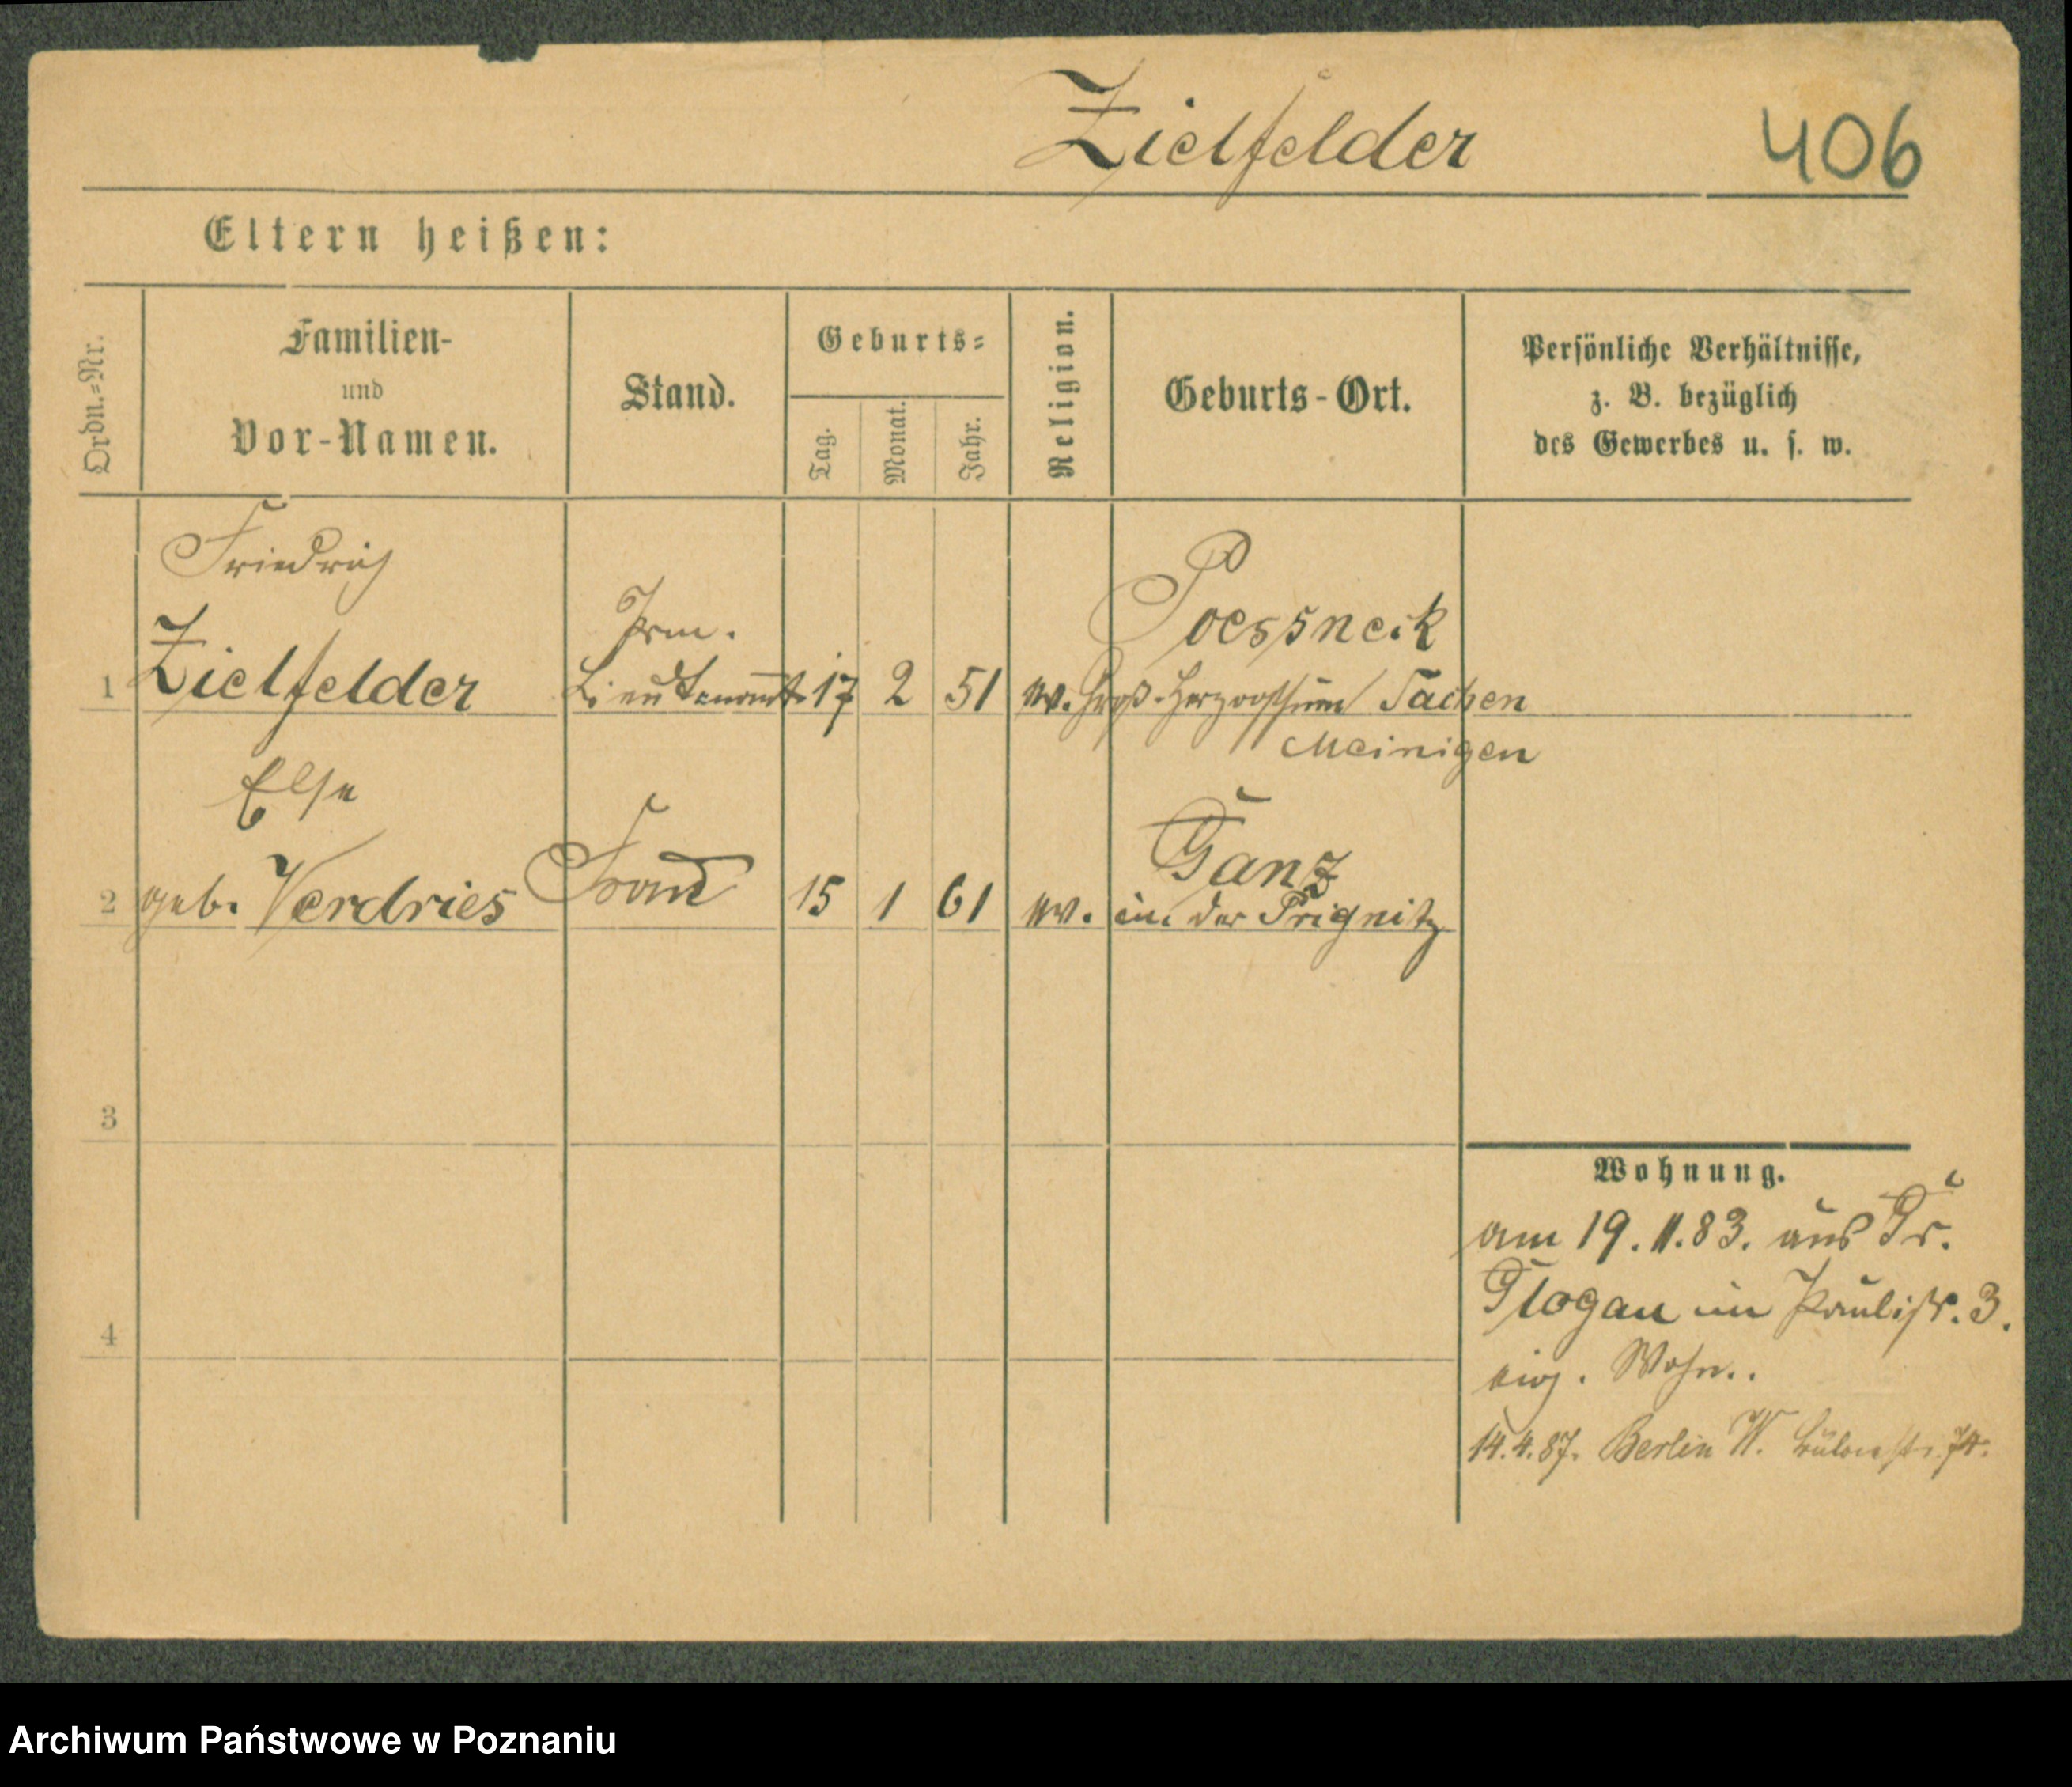 Zielfelder
406
Eltern heißen:
Ordn.=Nr.
Familien-
und
Vor-Namen.
Stand.
Geburts=
Tag.
Monat.
Jahr.
Religion.
Geburts-Ort.
Persönliche Verhältnisse,
z. B. bezüglich
des Gewerbes u. s. w.
Friedrich
Prm. Poessneck
1 Zielfelder Lieutenant 17 2 51 ev. Groß-Herzogthum Sachen
Meinigen
Else
Ganz
2 geb. Verdries Frau 15 1 61 ev. in der Prignitz
3
Wohnung.
am 19. 11. 83. aus Gr.
Glogau in Paulistr. 3.
4
eig. Wohn..
14.4.87. Berlin W. Bülowstr. 74.
Archiwum Państwowe w Poznaniu